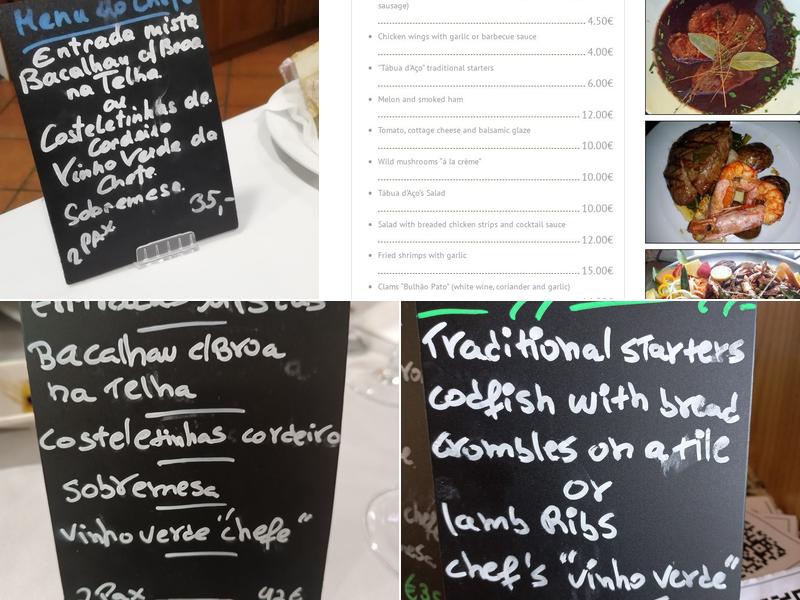 Menu do Chefe
Entrada mista
Bacalhau c/Broa
na Telha
ou
Costeletinhas de
Cordeiro
Vinho Verde da
Chefe
Sobremesa
2 PAX 35,-
sausage)
4.50€
Chicken wings with garlic or barbecue sauce
4.00€
"Tábua d'Aço" traditional starters
6.00€
Melon and smoked ham
12.00€
Tomato, cottage cheese and balsamic glaze
10.00€
Wild mushrooms "á la crème"
10.00€
Tábua d'Aço's Salad
10.00€
Salad with breaded chicken strips and cocktail sauce
12.00€
Fried shrimps with garlic
15.00€
Clams "Bulhão Pato" (white wine, coriander and garlic)
entradas mistas
Bacalhau c/Broa
na Telha
costeletinhas cordeiro
sobremesa
vinho verde "chefe"
2 Pax 42€
Traditional starters
codfish with bread
crombles on a tile
or
lamb Ribs
chef's "vinho verde"